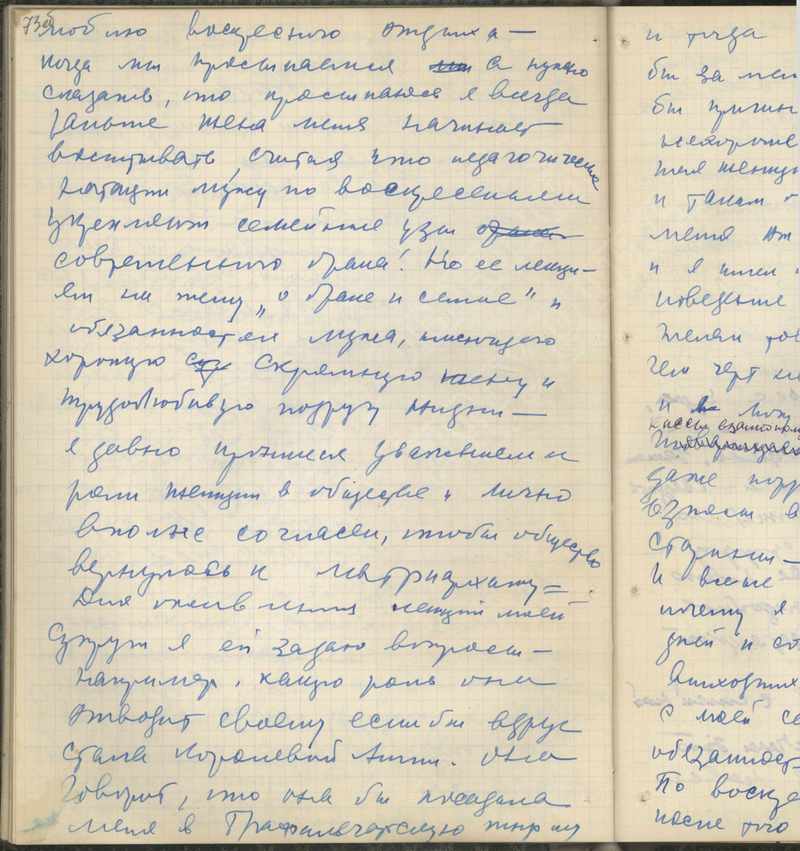 73об
люблю воскресного отдыха —
когда мы просыпаемся а нужно
сказать, что просыпаюсь я всегда
раньше жена меня начинает
воспитывать, считая что педагогические
нотации мужу по воскресеньям
укрепляют семейные узы
современного брака! Но ее лекции
на тему „о браке и семье" и
обязанностях мужа, имеющего
хорошую скромную жену и
трудолюбивую подругу жизни —
я давно проникся уважением к
роли женщин в обществе и лично
вполне согласен, чтобы общество
вернулось к матриархату —
Для оживления лекций моей
супруги я ей задаю вопросы —
например, какую роль она
отводит своему если бы вдруг
стала королевой Англии. Она
говорит, что она бы посадила
меня в тюрьму
и тогда
бы за
бы
и таким
меня от
и я имел
поведение
чем черт не
и
даже
И
почему я
дней и
с моей
обязанност
По воскр
после того